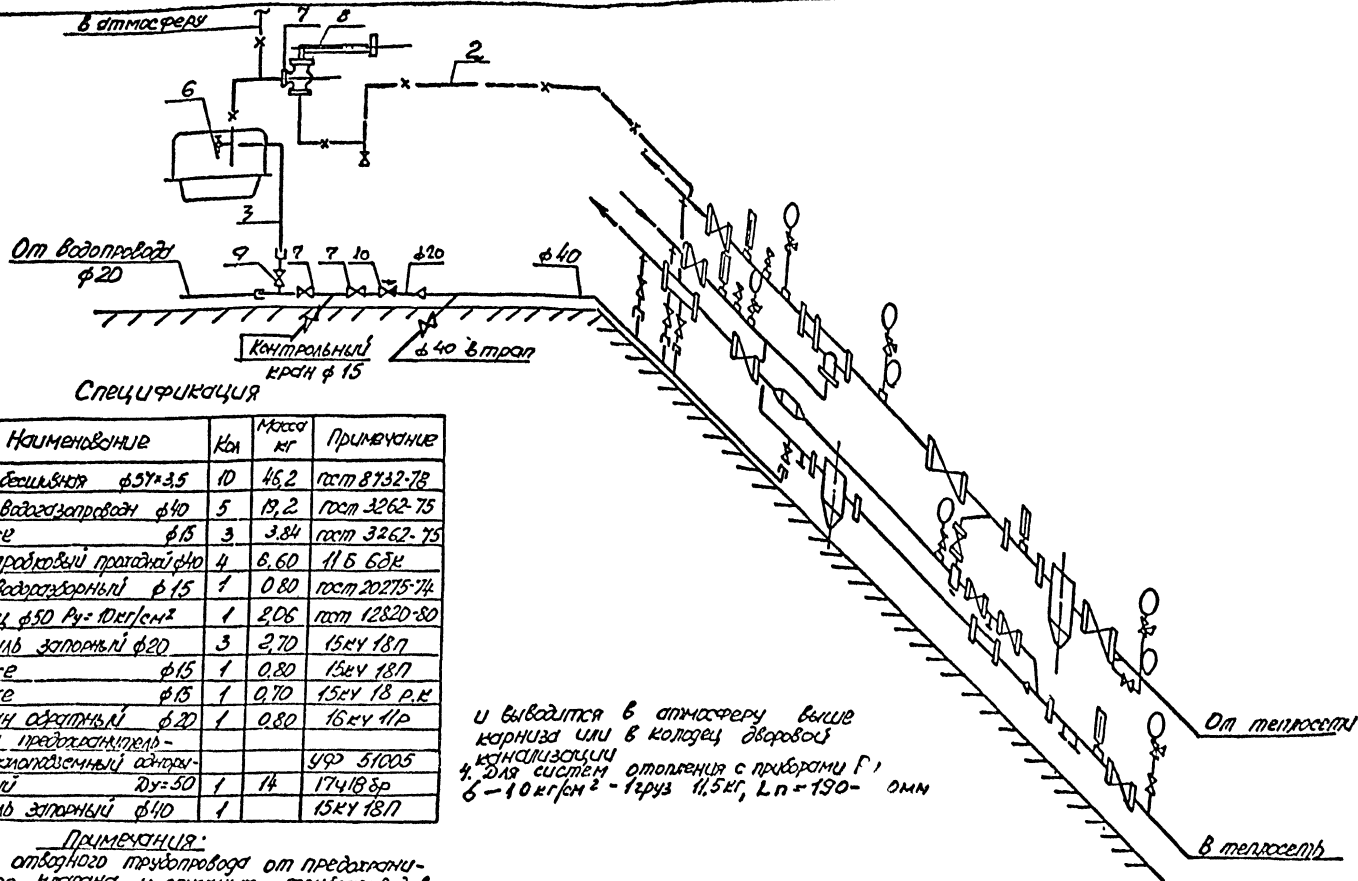 в атмосферу
7
8
2
6
3
От водопровода
φ20
9
7
7
10
φ20
φ40
Контрольный
кран φ15
φ40 в трап
Спецификация
Наименование Кол Масса кг Примечание
бесшовная φ57×3,5 10 46,2 гост 8732-78
водогазопроводн φ40 5 19,2 гост 3262-75
же φ15 3 3.84 гост 3262-75
пробковый проходной φ40 4 6,60 11Б 6бк
водоразборный φ15 1 0.80 гост 20275-74
ц φ50 Ру=10кг/см² 1 2,06 гост 12820-80
ль запорный φ20 3 2,70 15кч 18П
же φ15 1 0,80 15кч 18П
же φ15 1 0,70 15кч 18 р.к
н обратный φ20 1 0,80 16кч 11р
предохранитель-
малоподъемный одноры- УФ 51005
ый Ду=50 1 14 17ч18бр
ль запорный φ40 1 15кч 18П
Примечания:
отводного трубопровода от предохрани-
клапана
и выводится в атмосферу выше
карниза или в колодец дворовой
канализации
4. Для систем отопления с приборами Г,
6-10кг/см² - 1груз 11,5кг, Lп=190- 0мм
От теплосети
В теплосеть